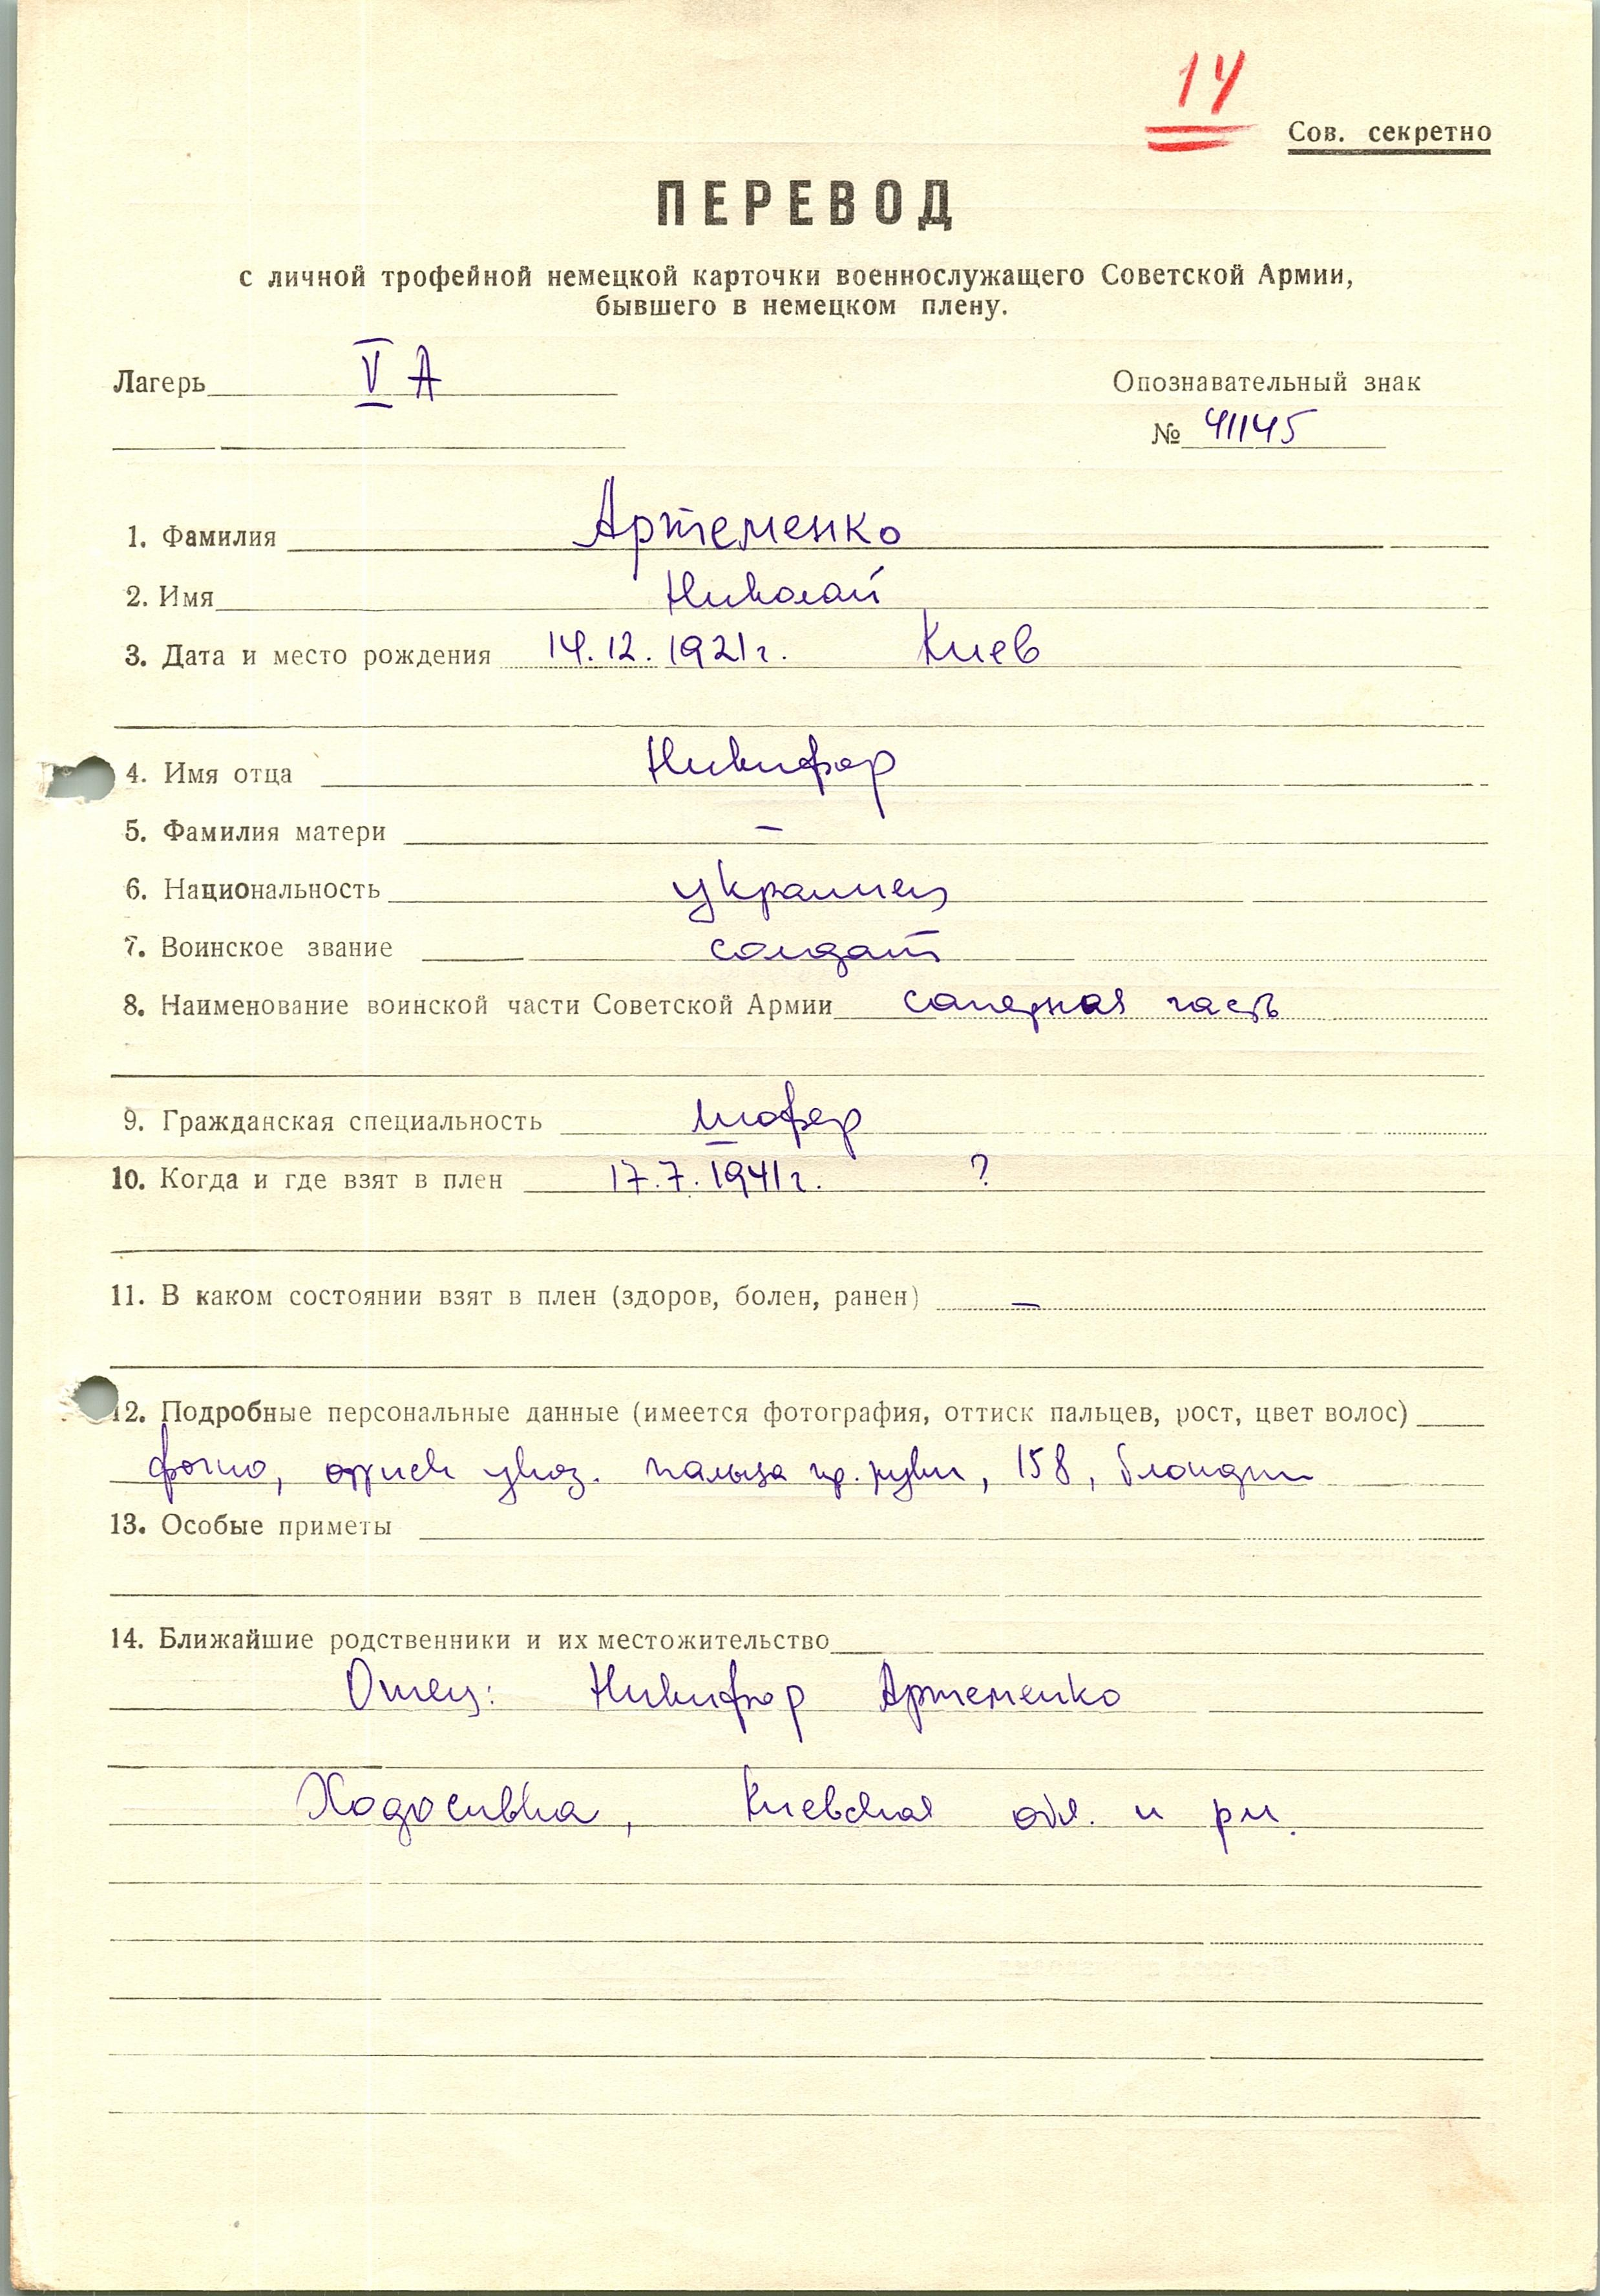 14
Сов. секретно
ПЕРЕВОД
с личной трофейной немецкой карточки военнослужащего Советской Армии,
бывшего в немецком плену.
Лагерь V А
Опознавательный знак
№ 41145
1. Фамилия Артеменко
2. Имя Николай
3. Дата и место рождения 14.12.1921г. Киев
4. Имя отца Никифор
5. Фамилия матери –
6. Национальность украинец
7. Воинское звание солдат
8. Наименование воинской части Советской Армии саперная часть
9. Гражданская специальность шофер
10. Когда и где взят в плен 17.7.1941г. ?
11. В каком состоянии взят в плен (здоров, болен, ранен) –
12. Подробные персональные данные (имеется фотография, оттиск пальцев, рост, цвет волос)
фото, оттиск указ. пальца пр. руки, 158, блондин
13. Особые приметы
14. Ближайшие родственники и их местожительство
Отец: Никифор Артеменко
Ходосивка, Киевская обл. и рн.